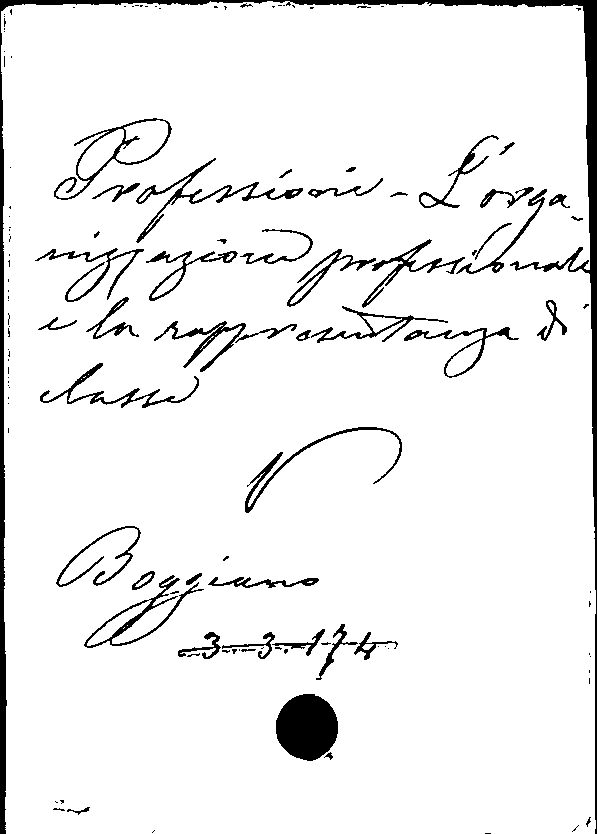 Professioni - L'orga-
nizzazione professionale
e la rappresentanza di
classe
V
Boggiano
3. 3. 174